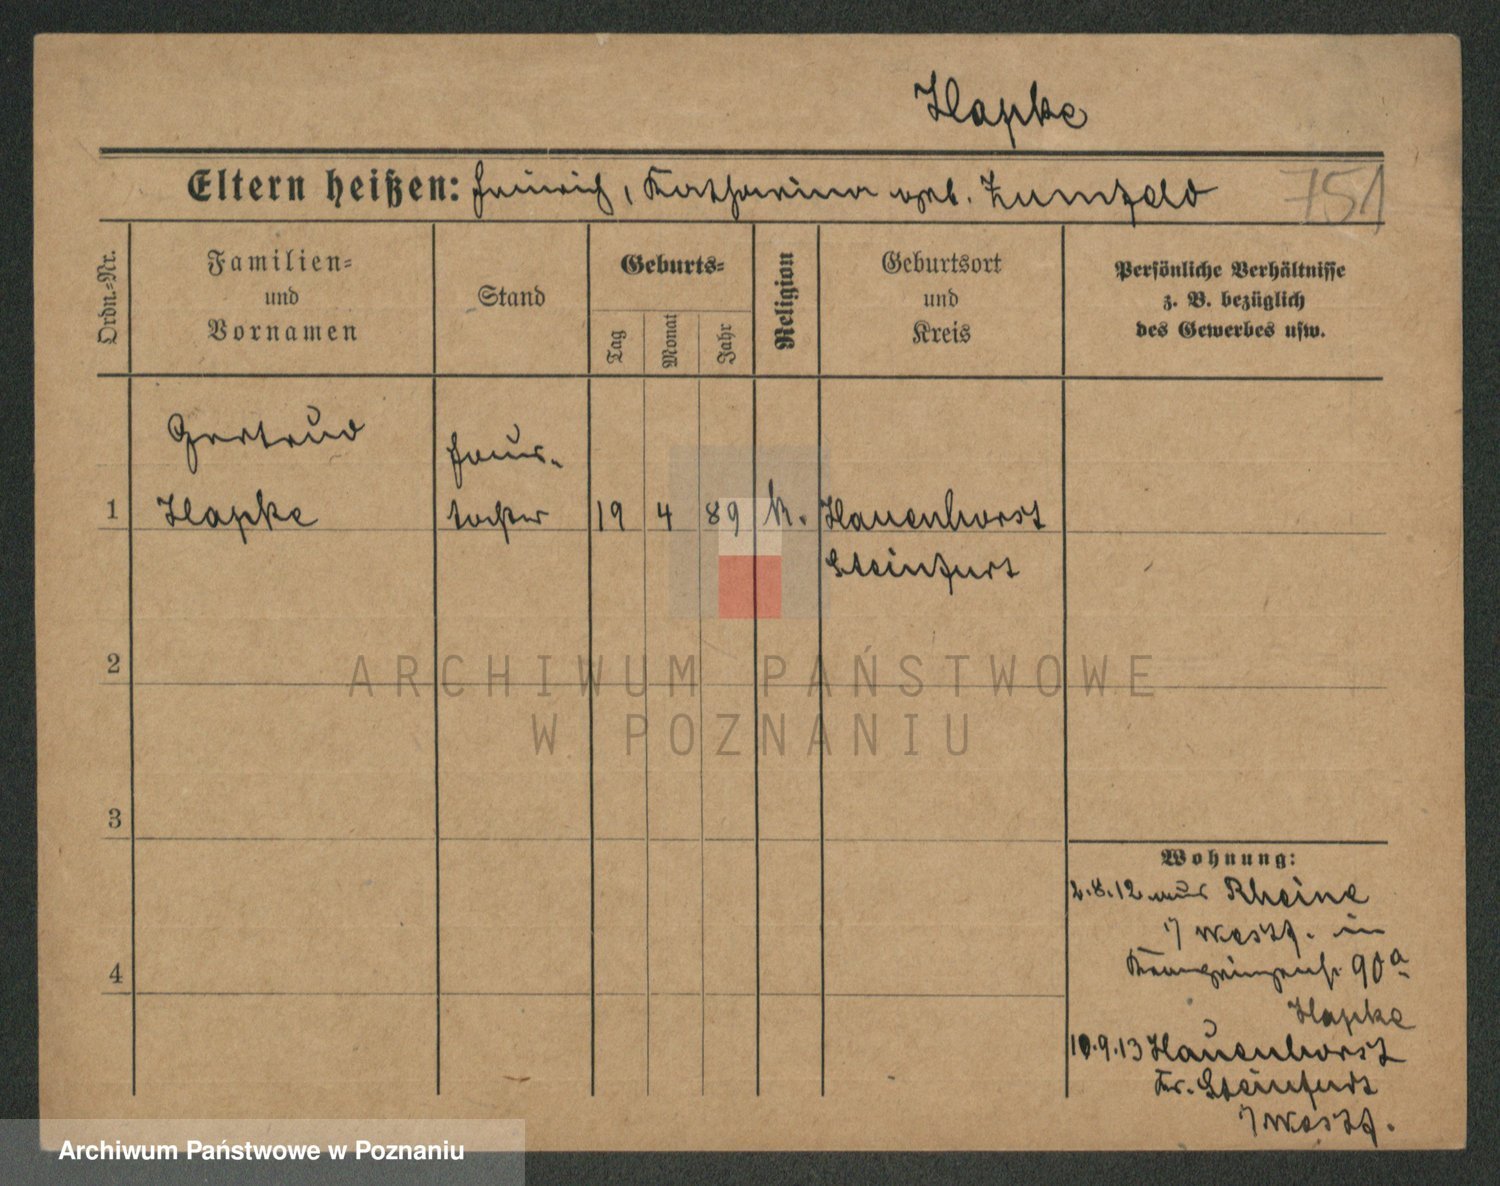 Hapke
Eltern heißen: Heinrich, Katharina geb. Zumfeld
751
Ordn.-Nr.
Familien-
und
Vornamen
Stand
Geburts-
Tag
Monat
Jahr
Religion
Geburtsort
und
Kreis
Persönliche Verhältnisse
z. B. bezüglich
des Gewerbes usw.
Gertrud
Haus-
1 Hapke tochter 19 4 89 k. Hauenhorst
Steinfurt
2
ARCHIWUM PAŃSTWOWE
W POZNANIU
3
Wohnung:
2.8.12 aus Rheine
i/ Westf. in
90a
4
Hapke
10.9.13 Hauenhorst
Kr. Steinfurt
i/ Westf.
Archiwum Państwowe w Poznaniu